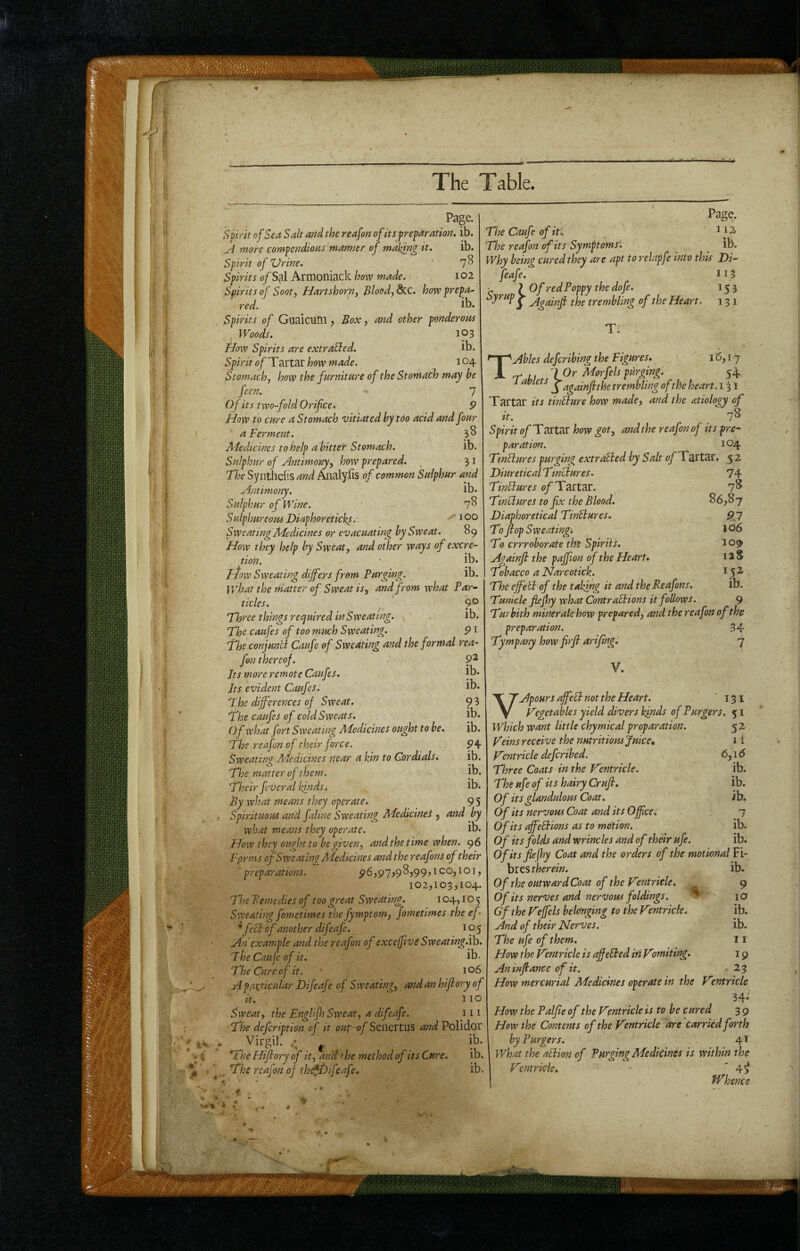 The Table.
Page.
Spirit of Sea Salt and the reason of its preparation. ib.
A more compendious manner of making it. ib.
Spirit of Urine. 78
Spirits of Sal Armoniack how made. 102
Spirits of Soot, Hartshorn, Blood, &c. how prepa-
red. ib.
Spirits of Guaicum, Box, and other ponderous
Woods. 103
How Spirits are extracted. ib.
Spirit of Tartar how made. 104
Stomach, how the furniture of the Stomach may be
seen. 7
Of its two-fold Orifice. 9
How to cure a Stomach vitiated by too acid and sour
a Ferment. 38
Medicines to help a bitter Stomach. ib.
Sulphur of Antimony, how prepared. 31
The Synthesis and Analysis of common Sulphur and
Antimony. ib.
Sulphur of Wine. 78
Sulphureous Diaphoreticks. 100
Sweating Medicines or evacuating by Sweat. 89
How they help by Sweat, and other ways of excre-
tion. ib.
How Sweating differs from Purging. ib.
What the matter of Sweat is, and from what Par-
ticles. 90
Three things required in Sweating. ib.
The causes of too much Sweating. 91
The conjunct Cause of Sweating and the formal rea-
son thereof. 92
Its more remote Causes. ib.
Its evident Causes. ib.
The differences of Sweat. 93
The causes of cold Sweats. ib.
Of what sort Sweating Medicines ought to be. ib.
The reason of their force. 94
Sweating Medicines near a kin to Cordials. ib.
The matter of them. ib.
Their several kinds. ib.
By what means they operate. 95
Spirituous and saline Sweating Medicines, and by
what means they operate. ib.
How they ought to be given, and the time when. 96
Forms of Sweating Medicines and the reasons of their
preparations. 96,97,98,99,100,101,
102,103,104.
The Remedies of too great Sweating. 104,105
Sweating sometimes the symptom, sometimes the ef-
fect of another disease. 105
An example and the reason of excessive Sweating. ib.
The Cause of it. ib.
The Cure of it. 106
A particular Disease of Sweating, and an history of
it. 110
Sweat, the English Sweat, a disease. 111
The description of it out of Senertus and Polidor
Virgil. ib.
The History of it, and the method of its Cure. ib.
The reason of the Disease. ib.
Page.
The Cause of it. 112
The reason of its Symptoms. ib.
Why being cured they are apt to relapse into this Di-
sease. 113
Syrup } Of red Poppy the dose. 153
Against the trembling of the Heart. 131
T.
TAbles describing the Figures. 16,17
Tablets } Or Morsels purging. 54
against the trembling of the heart. 131
Tartar its tincture how made, and the ætiology of
it. 78
Spirit of Tartar how got, and the reason of its pre-
paration. 104
Tinctures purging extracted by Salt of Tartar. 52
Diuretical Tinctures. 74
Tinctures of Tartar. 78
Tinctures to fix the Blood. 86,87
Diaphoretical Tinctures. 97
To stop Sweating. 106
To crrroborate the Spirits. 109
Against the passion of the Heart. 128
Tobacco a Narcotick. 152
The effect of the taking it and the Reasons. ib.
Tunicle fleshy what Contractions it follows. 9
Turbith minerale how prepared, and the reason of the
preparation. 34
Tympany how first arising. 7
V.
VApours affect not the Heart. 131
Vegetables yield divers kinds of Purgers. 51
Which want little chymical proparation. 52
Veins receive the nutritious Juice. 11
Ventricle described. 6,16
Three Coats in the Ventricle. ib.
The use of its hairy Crust. ib.
Of its glandulous Coat. ib.
Of its nervous Coat and its Office. 7
Of its affections as to motion. ib.
Of its folds and wrincles and of their use. ib.
Of its fleshy Coat and the orders of the motional Fi-
bres therein. ib.
Of the outward Coat of the Ventricle. 9
Of its nerves and nervous foldings. 10
Of the Vessels belonging to the Ventricle. ib.
And of their Nerves. ib.
The use of them. 11
How the Ventricle is affected in Vomiting. 19
An instance of it. 23
How mercurial Medicines operate in the Ventricle
34.
How the Palsie of the Ventricle is to be cured 39
How the Contents of the Ventricle are carried forth
by Purgers. 41
What the action of Purging Medicines is within the
Ventricle.
Whence